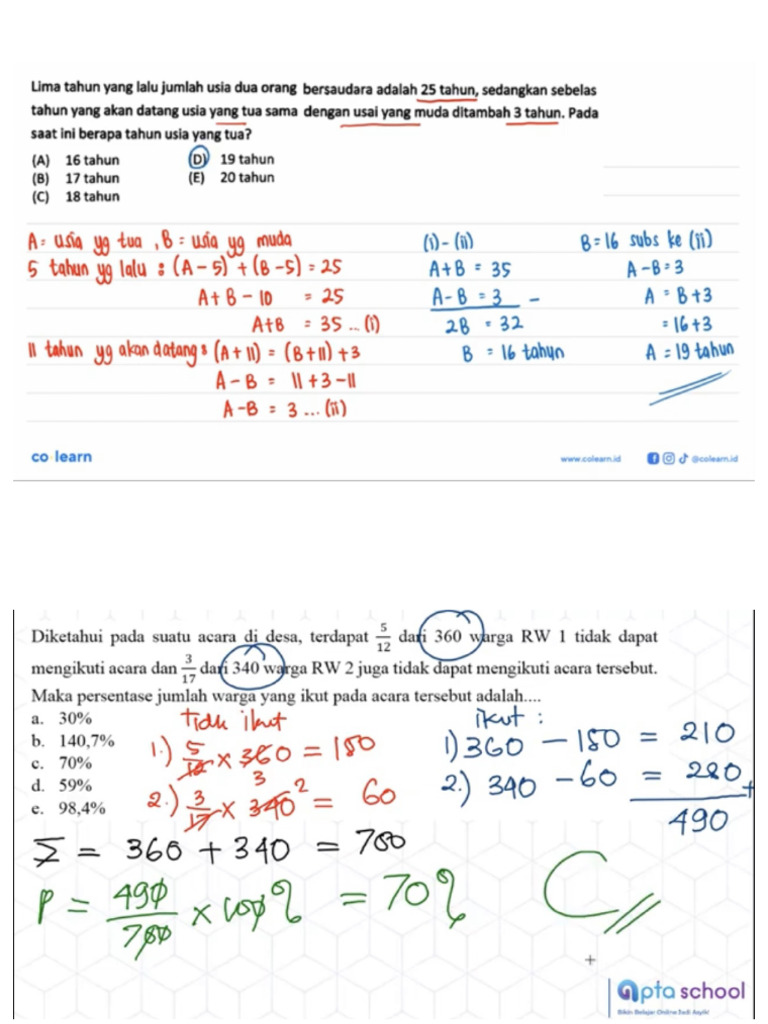 Lima tahun yang lalu jumlah usia dua orang bersaudara adalah 25 tahun, sedangkan sebelas
tahun yang akan datang usia yang tua sama dengan usai yang muda ditambah 3 tahun. Pada
saat ini berapa tahun usia yang tua?
(A) 16 tahun (D) 19 tahun
(B) 17 tahun (E) 20 tahun
(C) 18 tahun
A = usia yg tua , B = usia yg muda
5 tahun yg lalu : (A - 5) + (B - 5) = 25
A + B - 10 = 25
A+B = 35 ... (i)
11 tahun yg akan datang : (A + 11) = (B + 11) + 3
A - B = 11 + 3 - 11
A - B = 3 ... (ii)
(i) - (ii)
A + B = 35
A - B = 3 -
2B = 32
B = 16 tahun
B = 16 subs ke (ii)
A - B = 3
A = B + 3
= 16 + 3
A = 19 tahun
co learn
www.colearn.id @colearn.id
Diketahui pada suatu acara di desa, terdapat 5/12 dari 360 warga RW 1 tidak dapat
mengikuti acara dan 3/17 dari 340 warga RW 2 juga tidak dapat mengikuti acara tersebut.
Maka persentase jumlah warga yang ikut pada acara tersebut adalah....
a. 30%
b. 140,7%
c. 70%
d. 59%
e. 98,4%
tidk ikut
1.) 5/12 x 360 = 150
3
2.) 3/17 x 340 2 = 60
ikut :
1) 360 - 150 = 210
2.) 340 - 60 = 280 +
490
Σ = 360 + 340 = 700
P = 490/700 x 100 % = 70 %
C
apta school
Bikin Belajar Online Jadi Asyik!